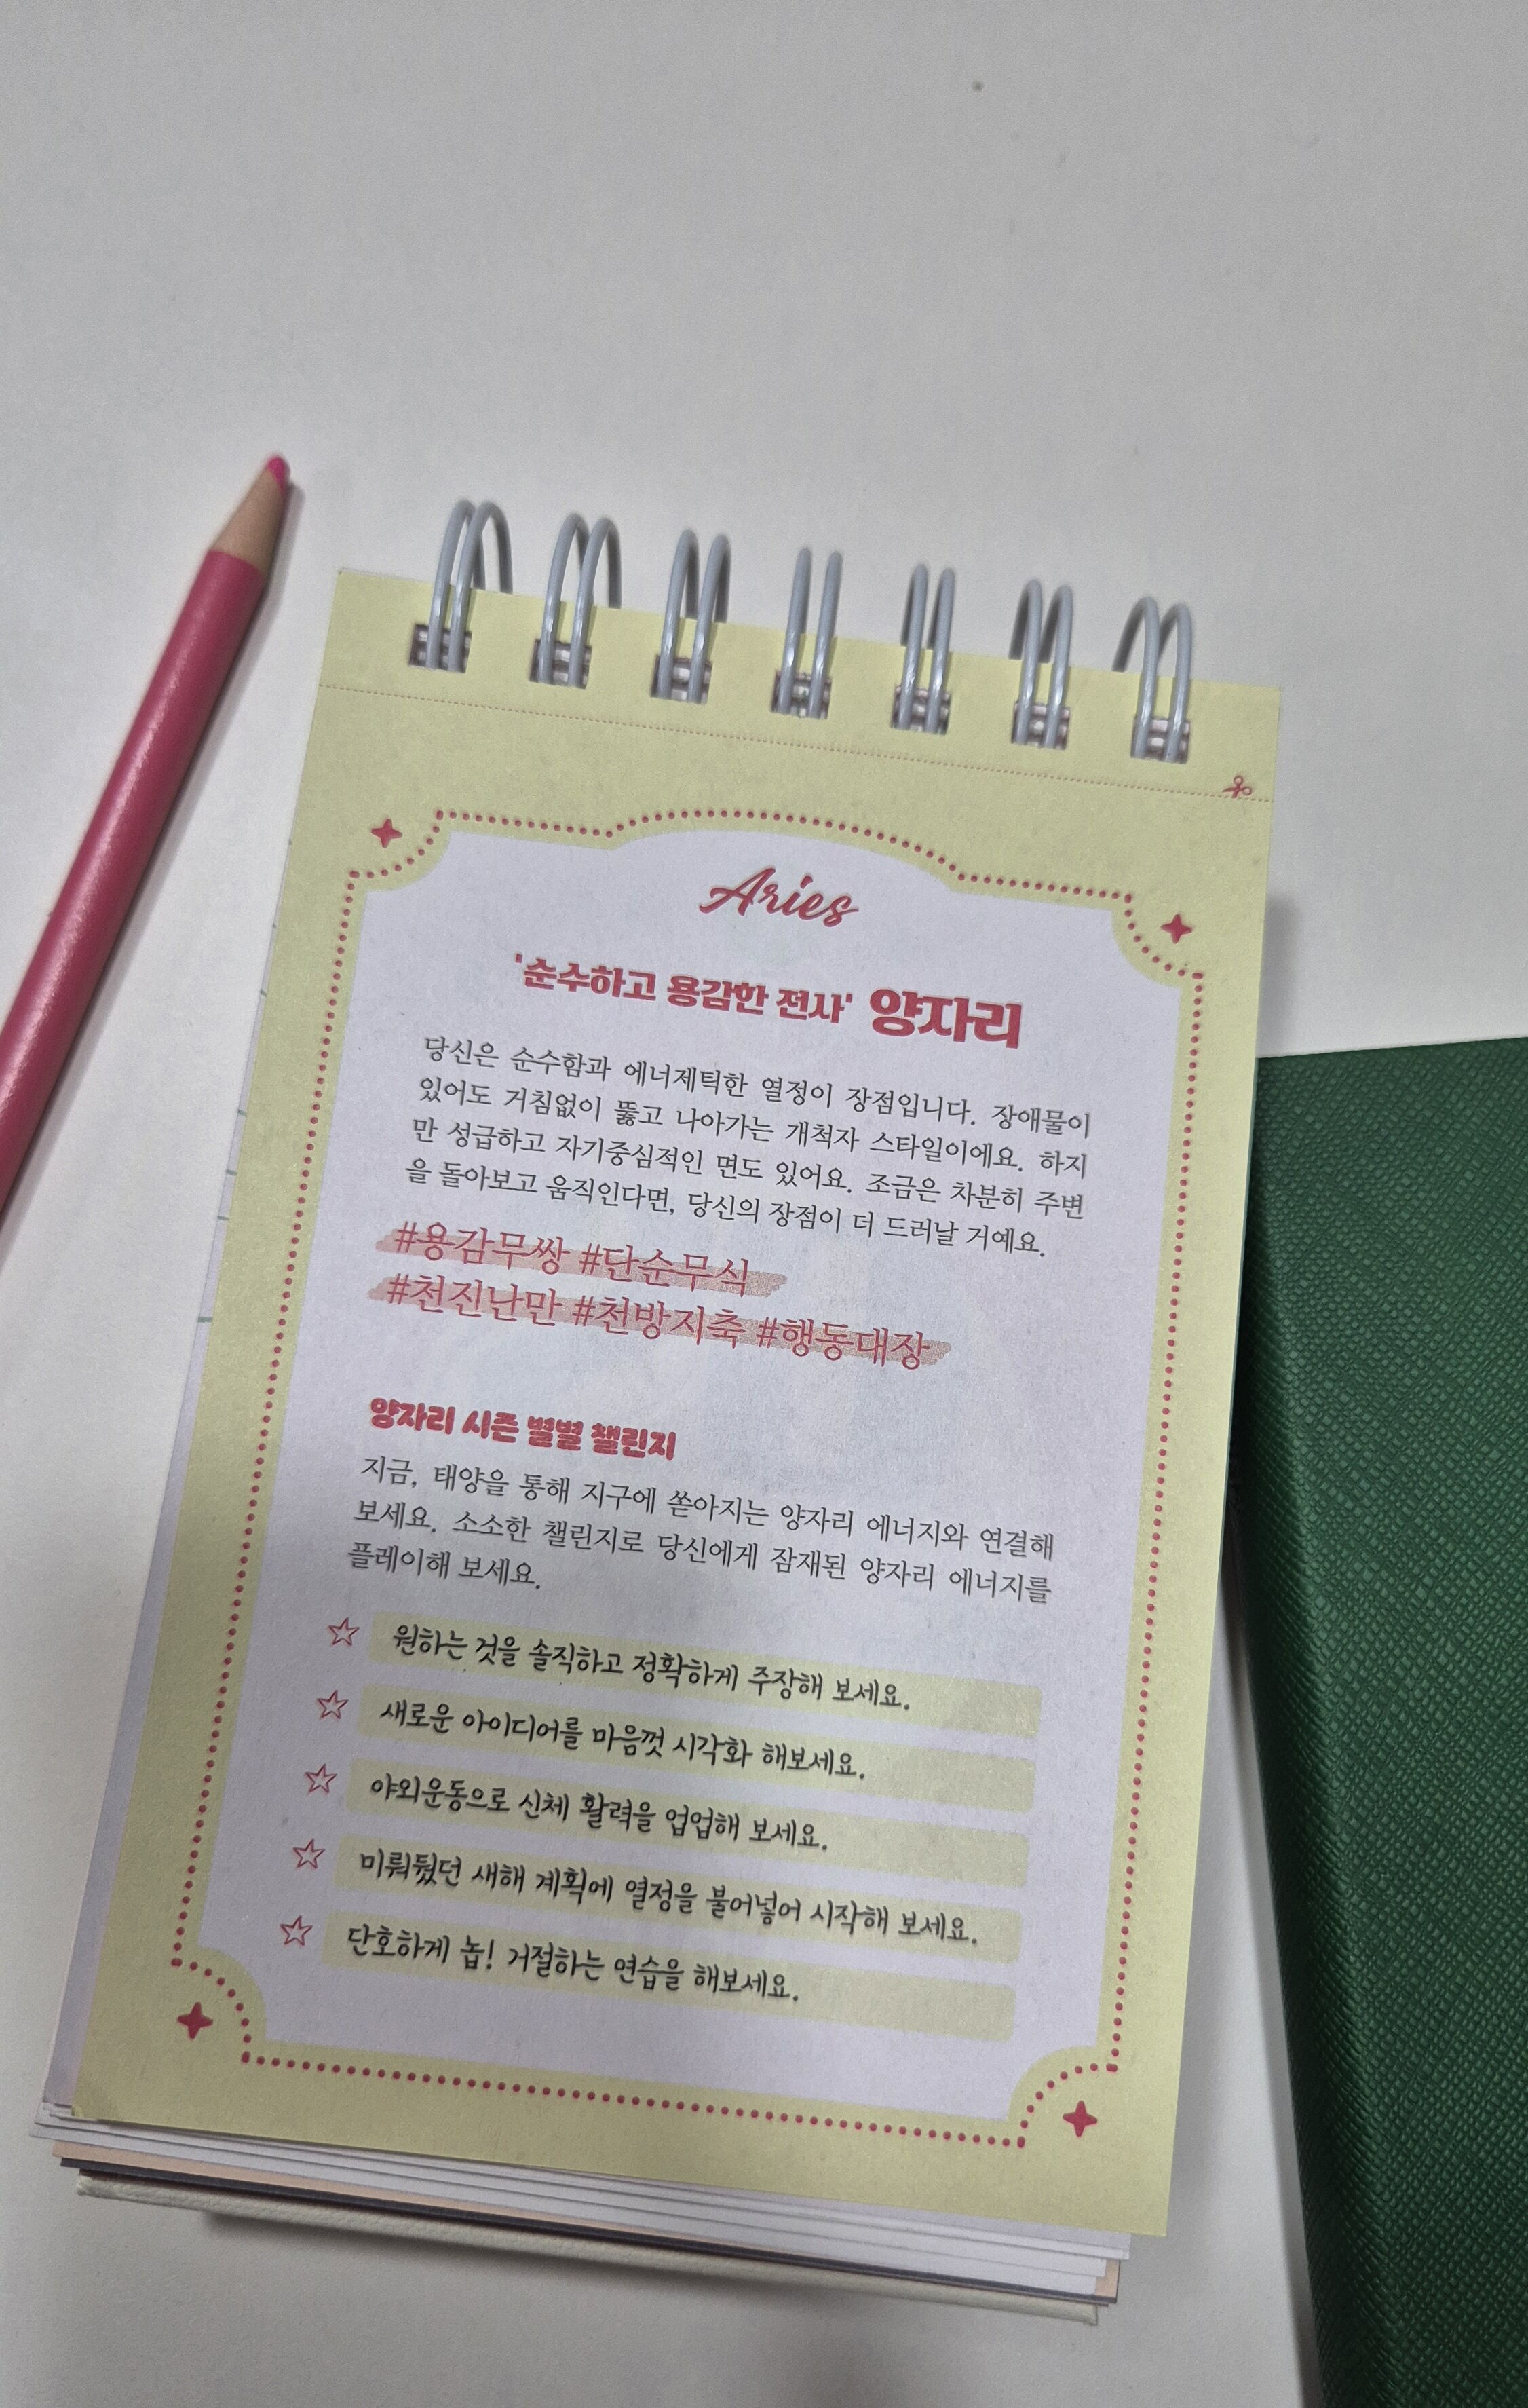 Aries
'순수하고 용감한 전사' 양자리
당신은 순수함과 에너제틱한 열정이 장점입니다. 장애물이
있어도 거침없이 뚫고 나아가는 개척자 스타일이에요. 하지
만 성급하고 자기중심적인 면도 있어요. 조금은 차분히 주변
을 돌아보고 움직인다면, 당신의 장점이 더 드러날 거예요.
#용감무쌍 #단순무식
#천진난만 #천방지축 #행동대장
양자리 시즌 별별 챌린지
지금, 태양을 통해 지구에 쏟아지는 양자리 에너지와 연결해
보세요. 소소한 챌린지로 당신에게 잠재된 양자리 에너지를
플레이해 보세요.
원하는 것을 솔직하고 정확하게 주장해 보세요.
새로운 아이디어를 마음껏 시각화 해보세요.
야외운동으로 신체 활력을 업업해 보세요.
미뤄뒀던 새해 계획에 열정을 불어넣어 시작해 보세요.
단호하게 놉! 거절하는 연습을 해보세요.